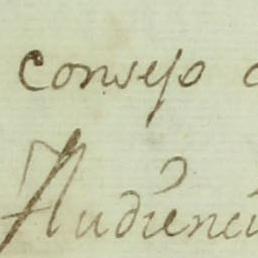 consejo
Audienci